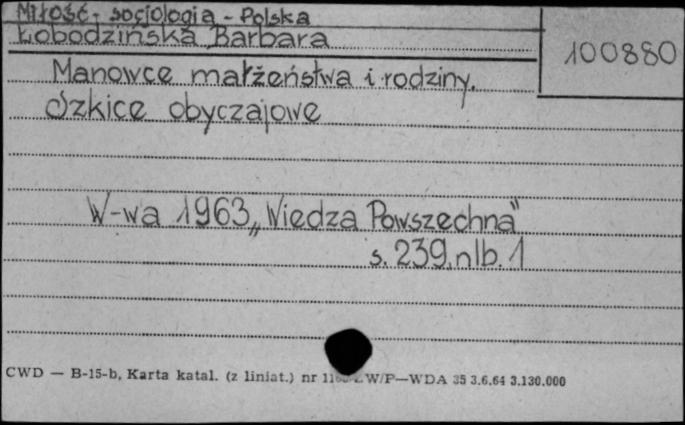 Miłość - socjologia - Polska
Łobodzińska Barbara
100880
Manowce małżeństwa i rodziny.
Szkice obyczajowe
W-wa 1963 „Wiedza Powszechna"
s. 239, nlb. 1
CWD — B-15-b, Karta katal. (z liniat.) nr W/P—WDA 35 3.6.64 3.130.000